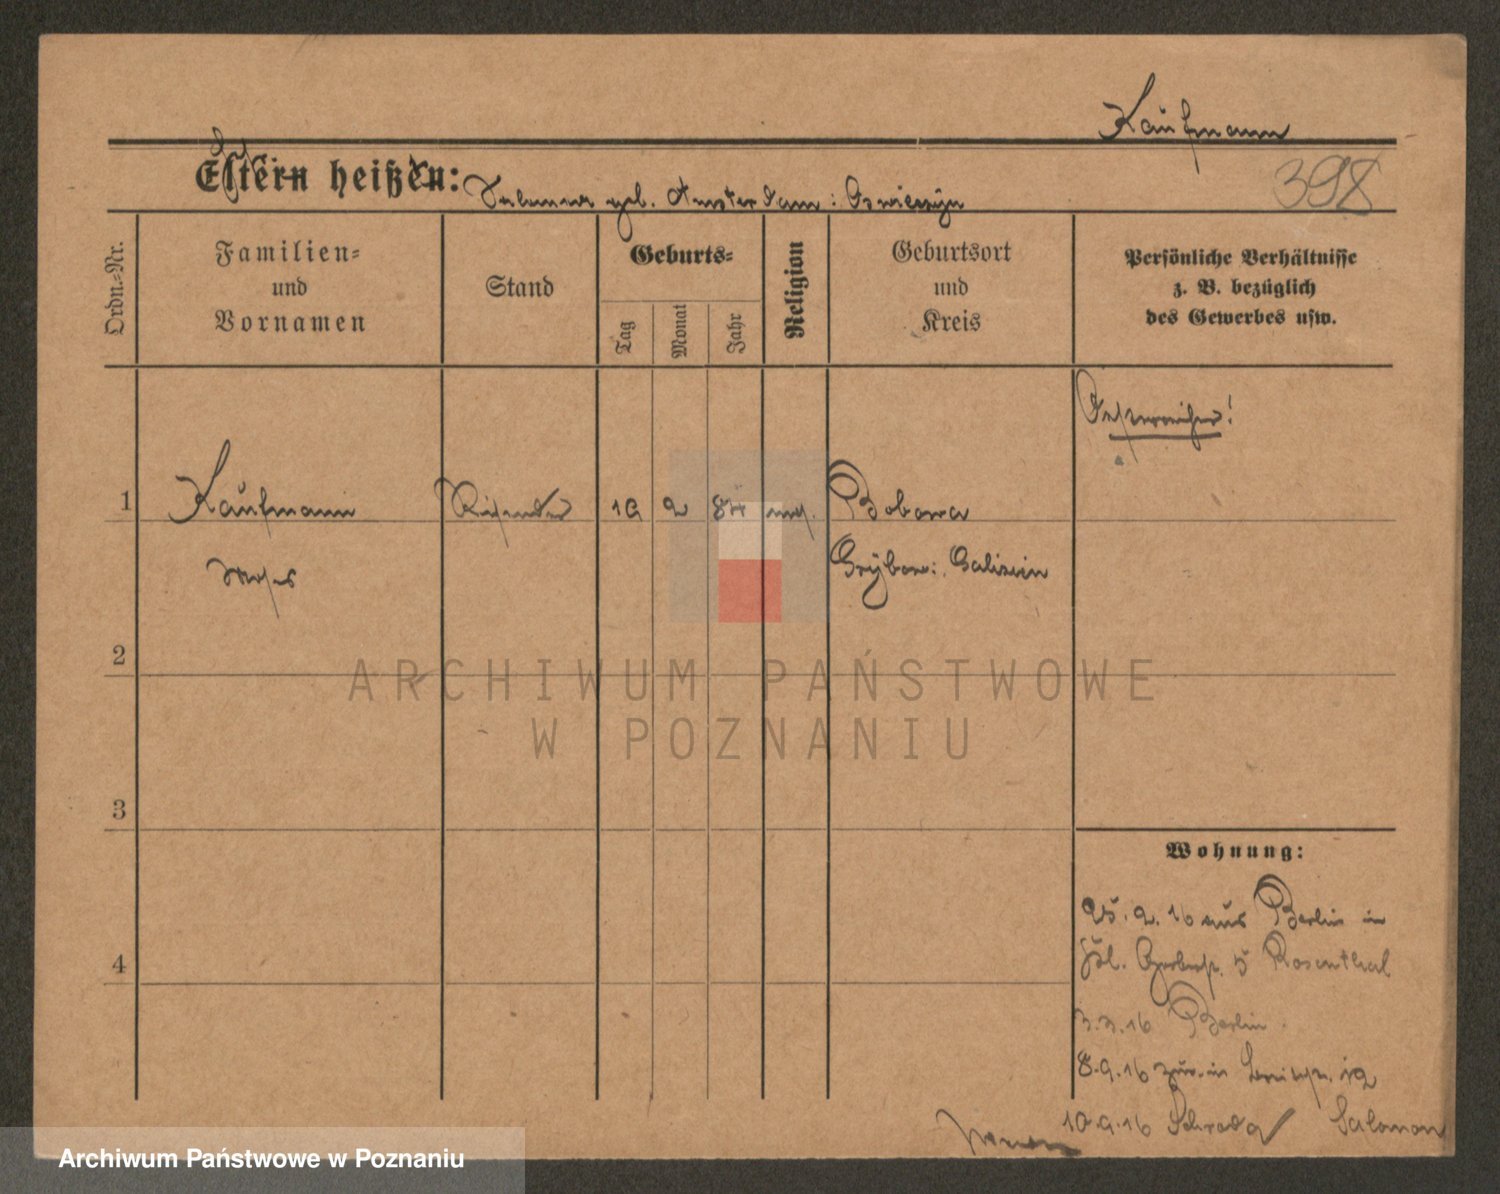 Kaufmann
Eltern heißen:
geb. Amsterdam: Oswiecyn
398
Ordn.-Nr.
Familien-
und
Vornamen
Stand
Geburts-
Tag
Monat
Jahr
Religion
Geburtsort
und
Kreis
Persönliche Verhältnisse
z. B. bezüglich
des Gewerbes usw.
Oesterreicher!
1
Kaufmann
19 2 84 mos.
Bobowa
Moses
Grybow: Galizien
2
3
4
Wohnung:
25.2.16 aus Berlin in
Gerberstr. 5 Rosenthal
3.3.16 Berlin
8.9.16 zur. in Breitestr. 12
10.9.16 Schroda Salomon
ARCHIWUM PAŃSTWOWE
W POZNANIU
Archiwum Państwowe w Poznaniu